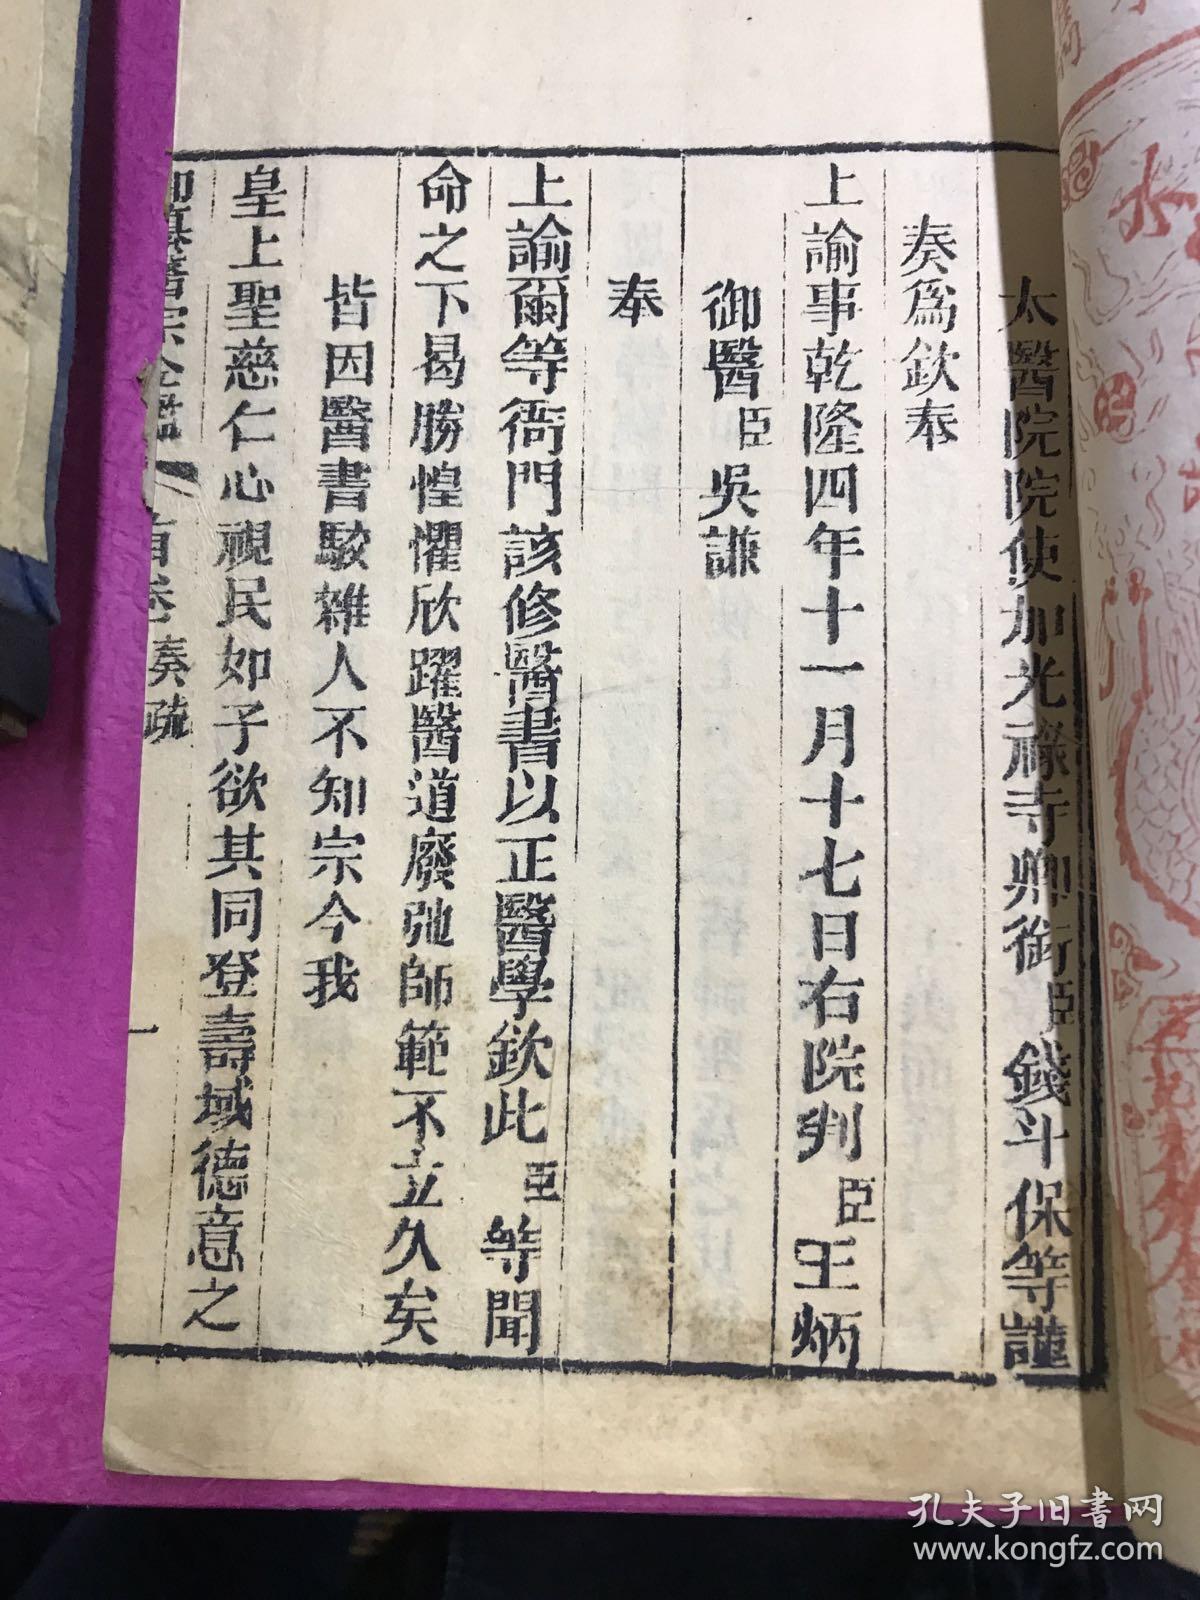 太醫院院使加光祿寺卿銜臣錢斗保等謹
奏爲欽奉
上諭事乾隆四年十一月十七日右院判臣王炳
御醫臣吳謙
奉
上諭爾等衙門該修醫書以正醫學欽此臣等聞
命之下曷勝惶懼欣躍醫道廢弛師範不立久矣
皆因醫書駁雜人不知宗今我
皇上聖慈仁心視民如子欲其同登壽域德意之
御纂醫宗金鑑 首卷奏疏 一
孔夫子旧书网
www.kongfz.com